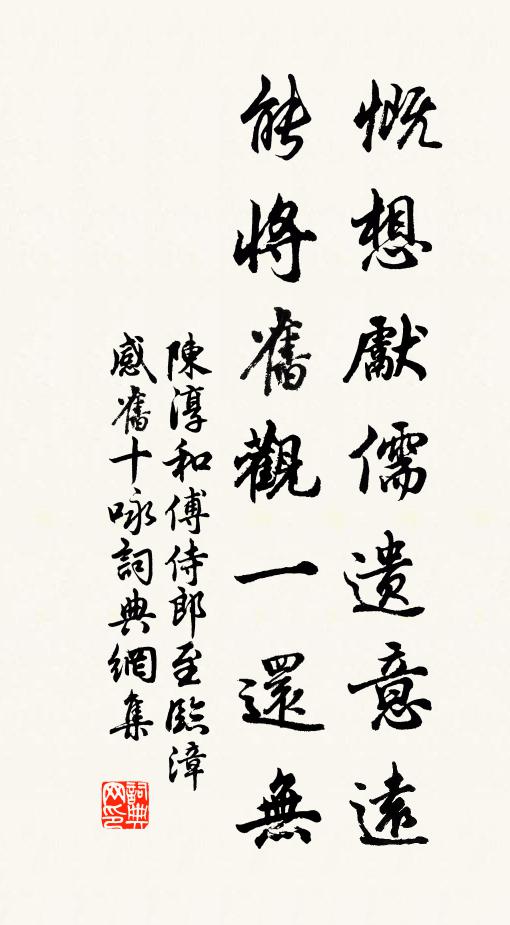 慨想獻儒遺意遠
能將舊觀一還無
陳淳和傅侍郎至臨漳
感舊十咏詞典網集
詞典网印